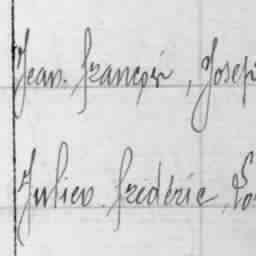 Jean. françois, Josep
Julien. frédéric